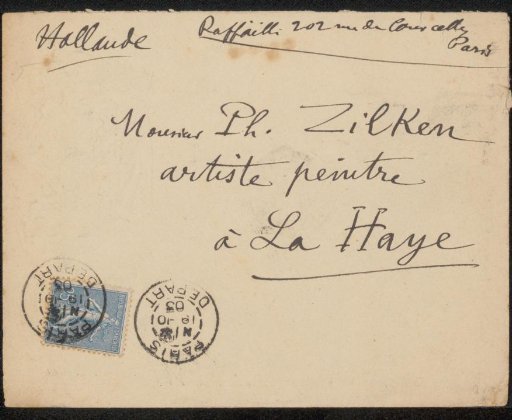 Hollande
Raffaëlli 202 rue de Courcelles
Paris
Monsieur Ph. Zilken
artiste peintre
à La Haye
PARIS
19-10
03
DEPART
PARIS
19-10
03
DEPART